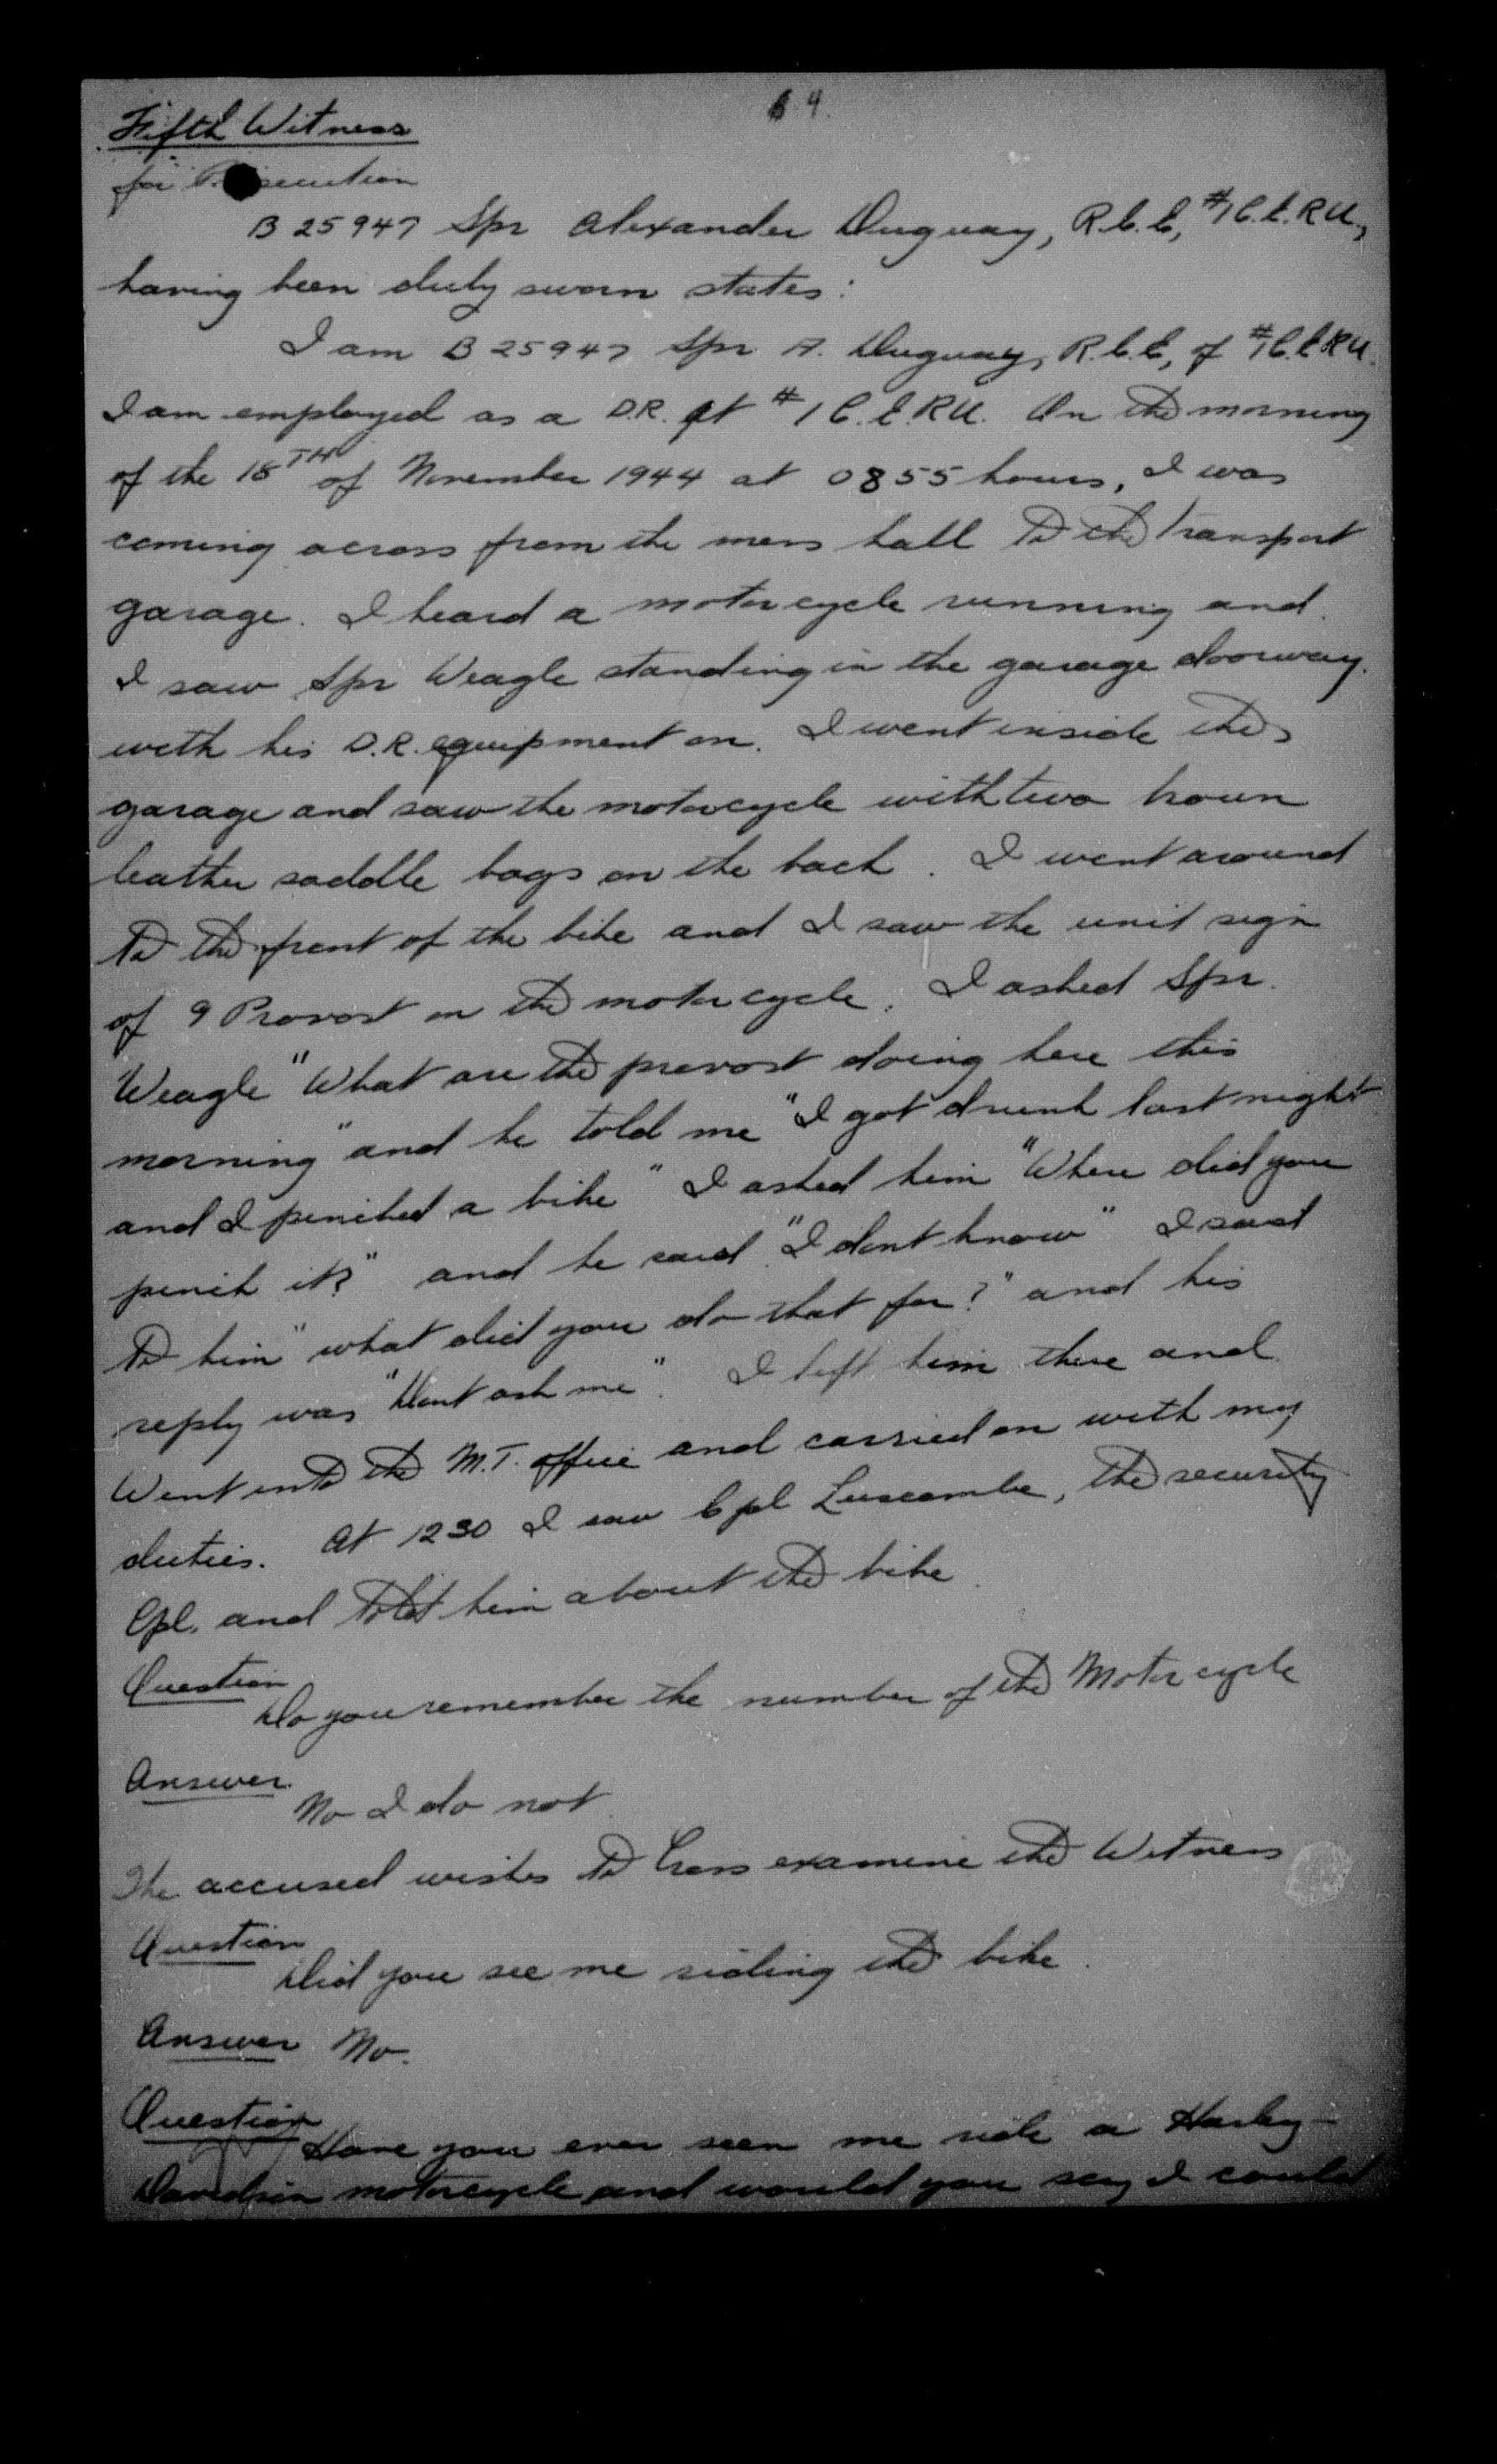 9.
Fifth Witness
for Prosecution
B 25947 Spr Alexander Duguay, R.C.E, #1 C.E.R.U.,
having been duly sworn states:
I am B 25947 Spr A. Duguay, R.C.E, of #1 C.E.R.U.
I am employed as a D.R. at #1 C.E.R.U. On the morning
of the 18TH of November 1944 at 0855 hours, I was
coming across from the mess hall to the transport
garage. I heard a motorcycle running and
I saw Spr Weagle standing in the garage doorway.
with his D.R. equipment on. I went inside the
garage and saw the motorcycle with two brown
leather saddle bags on the back. I went around
to the front of the bike and I saw the unit sign
of 9 Provost on the motorcycle. I asked Spr.
Weagle "What are the provost doing here this
morning" and he told me "I got drunk last night
and I pinched a bike" I asked him "Where did you
pinch it?" and he said "I dont know" I said
to him "what did you do that for?" and his
reply was "Dont ask me". I left him there and
Went into the M.T. office and carried on with my
duties. At 1230 I saw Cpl Luscombe, the security
Cpl. and told him about the bike.
Question
Do you remember the number of the Motorcycle
Answer.
No I do not.
The accused wishes to Cross examine the Witness
Question
Did you see me riding the bike.
Answer No.
Question
Have you ever seen me ride a Harley-
Davidson motorcycle and would you say I could